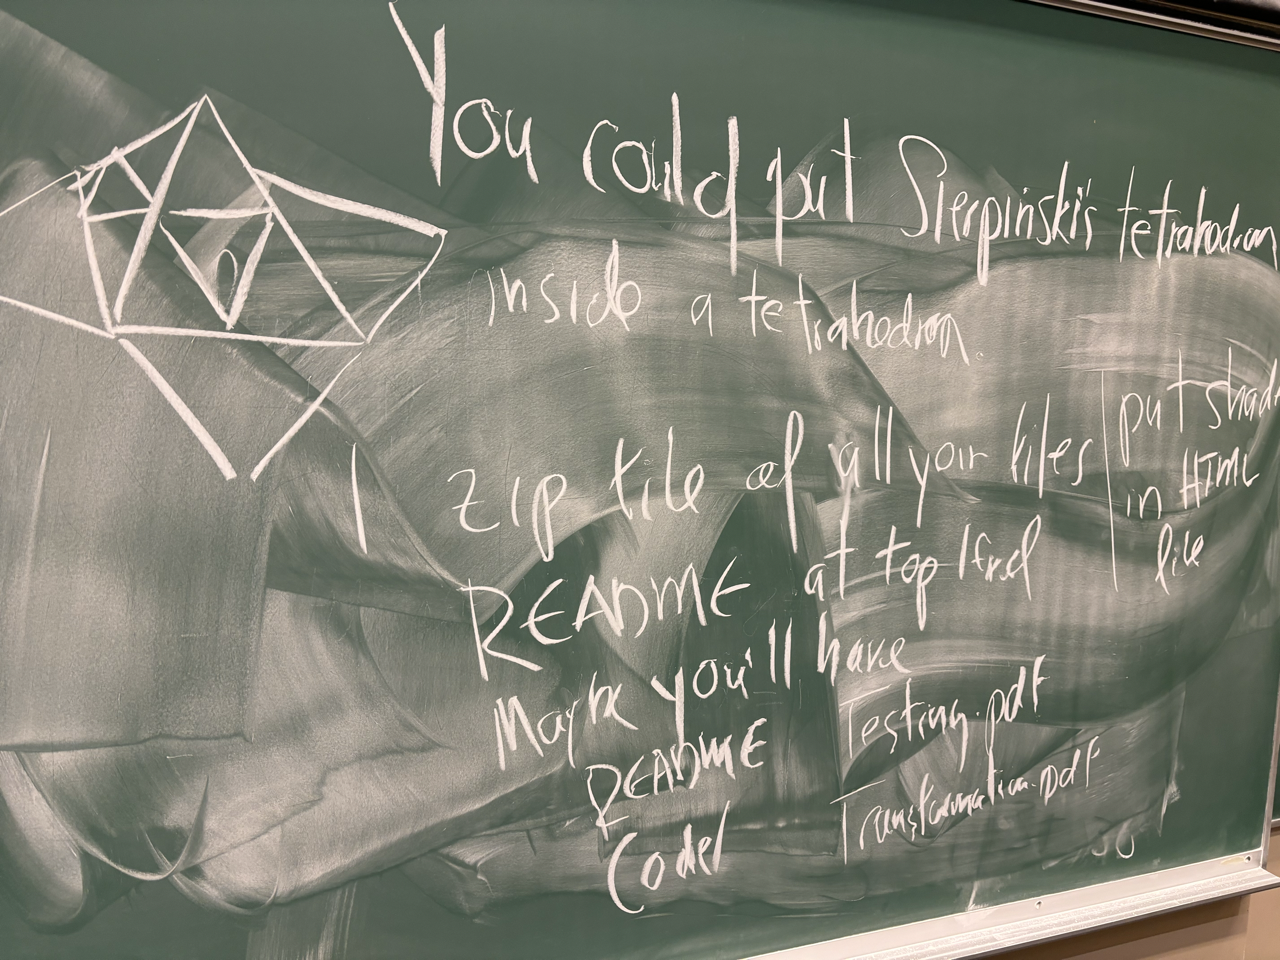 You could put Sierpiński's tetrahedron
inside a tetrahedron.
zip file of all your files
README at top level
put shad
in HTML
file
Maybe you'll have
README
Code/
Testing.pdf
Transformation.pdf